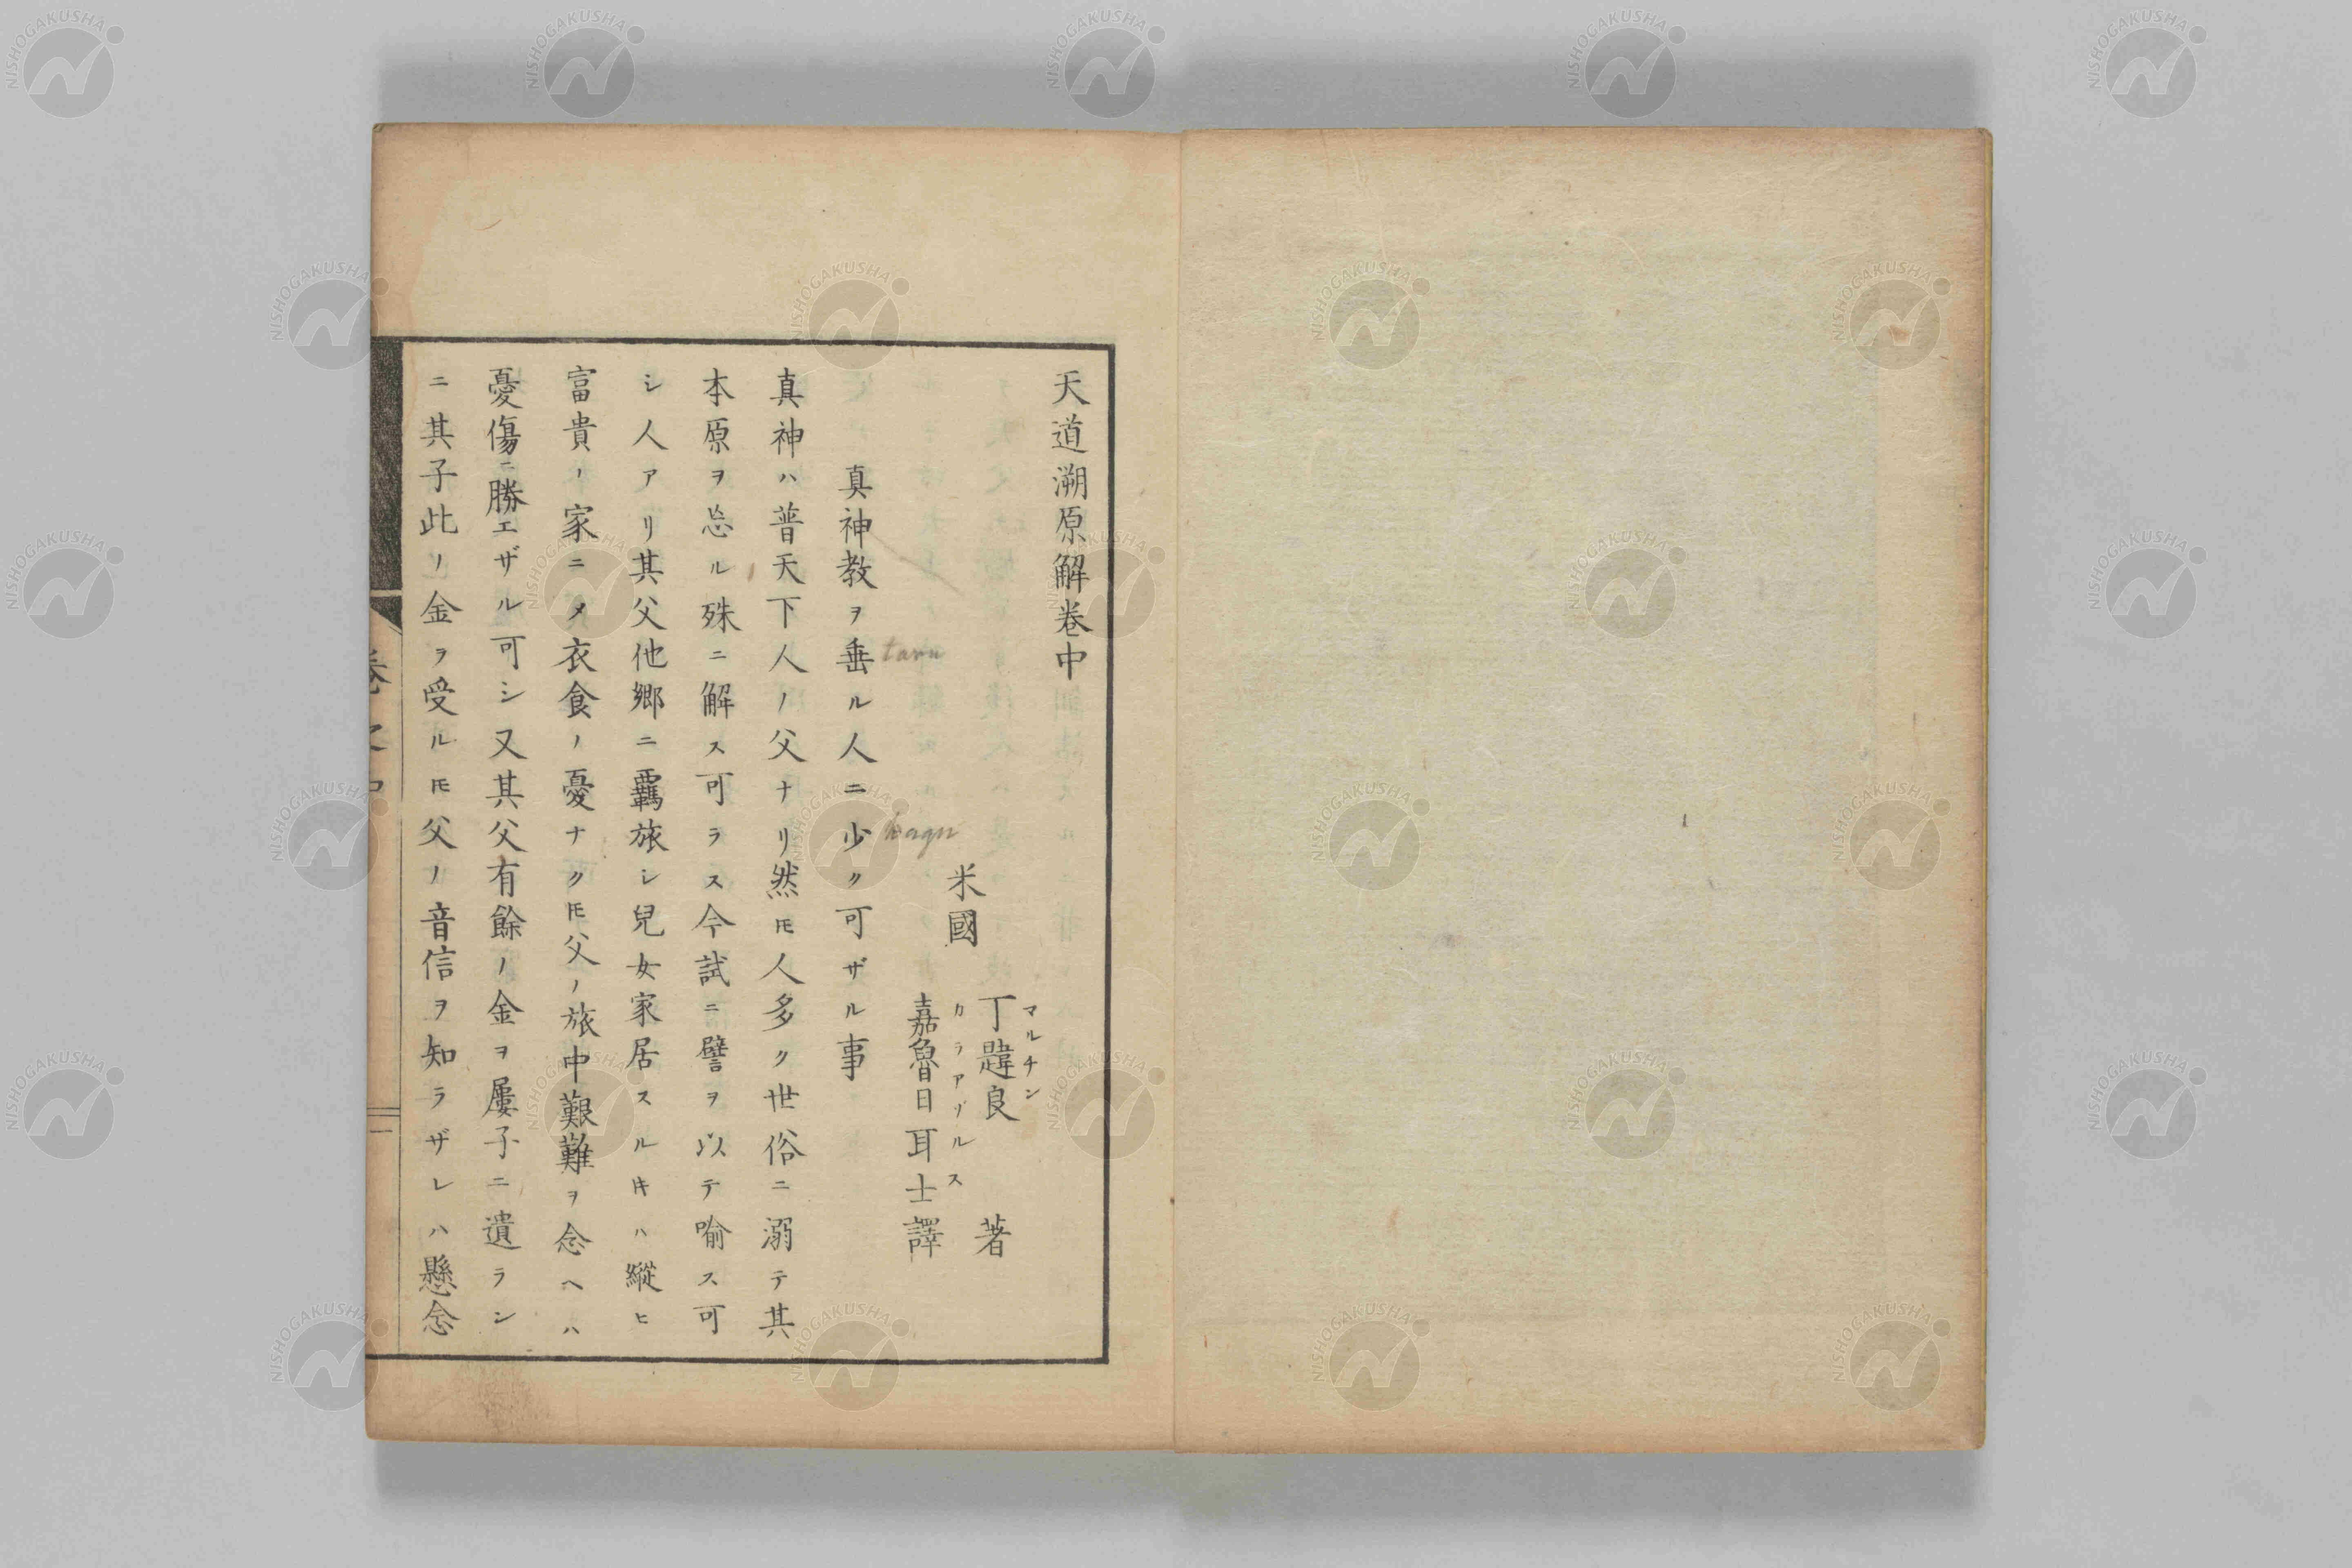 天道溯原解卷中
米國
丁韙良 著
マルチン
嘉魯日耳士譯
カラアゾルス
真神教ヲ垂ル人ニ少ク可ザル事
taru
kaqu
真神ハ普天下人ノ父ナリ然𪜈人多ク世俗ニ溺テ其
本原ヲ忘ル殊ニ解ス可ラス今試ニ譬ヲ以テ喻ス可
シ人アリ其父他鄉ニ羈旅シ兒女家居スルキハ縱ヒ
富貴ノ家ニ〆衣食ノ憂ナク𪜈父ノ旅中艱難ヲ念ヘハ
憂傷ニ勝エザル可シ又其父有餘ノ金ヲ屢子ニ遺ラン
ニ其子此ノ金ヲ受ル𪜈父ノ音信ヲ知ラザレハ懸念
卷之中
NISHOGAKUSHA